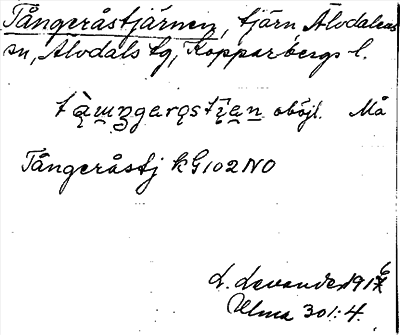 Tångeråstjärnen, tjärn Älvdalens
sn, Älvdals tg, Kopparbergs l.
tàɯngarǫstīan oböjl. Må
Tångeråstj kG102NO
L. Levander 1916
Ulma 301:4.